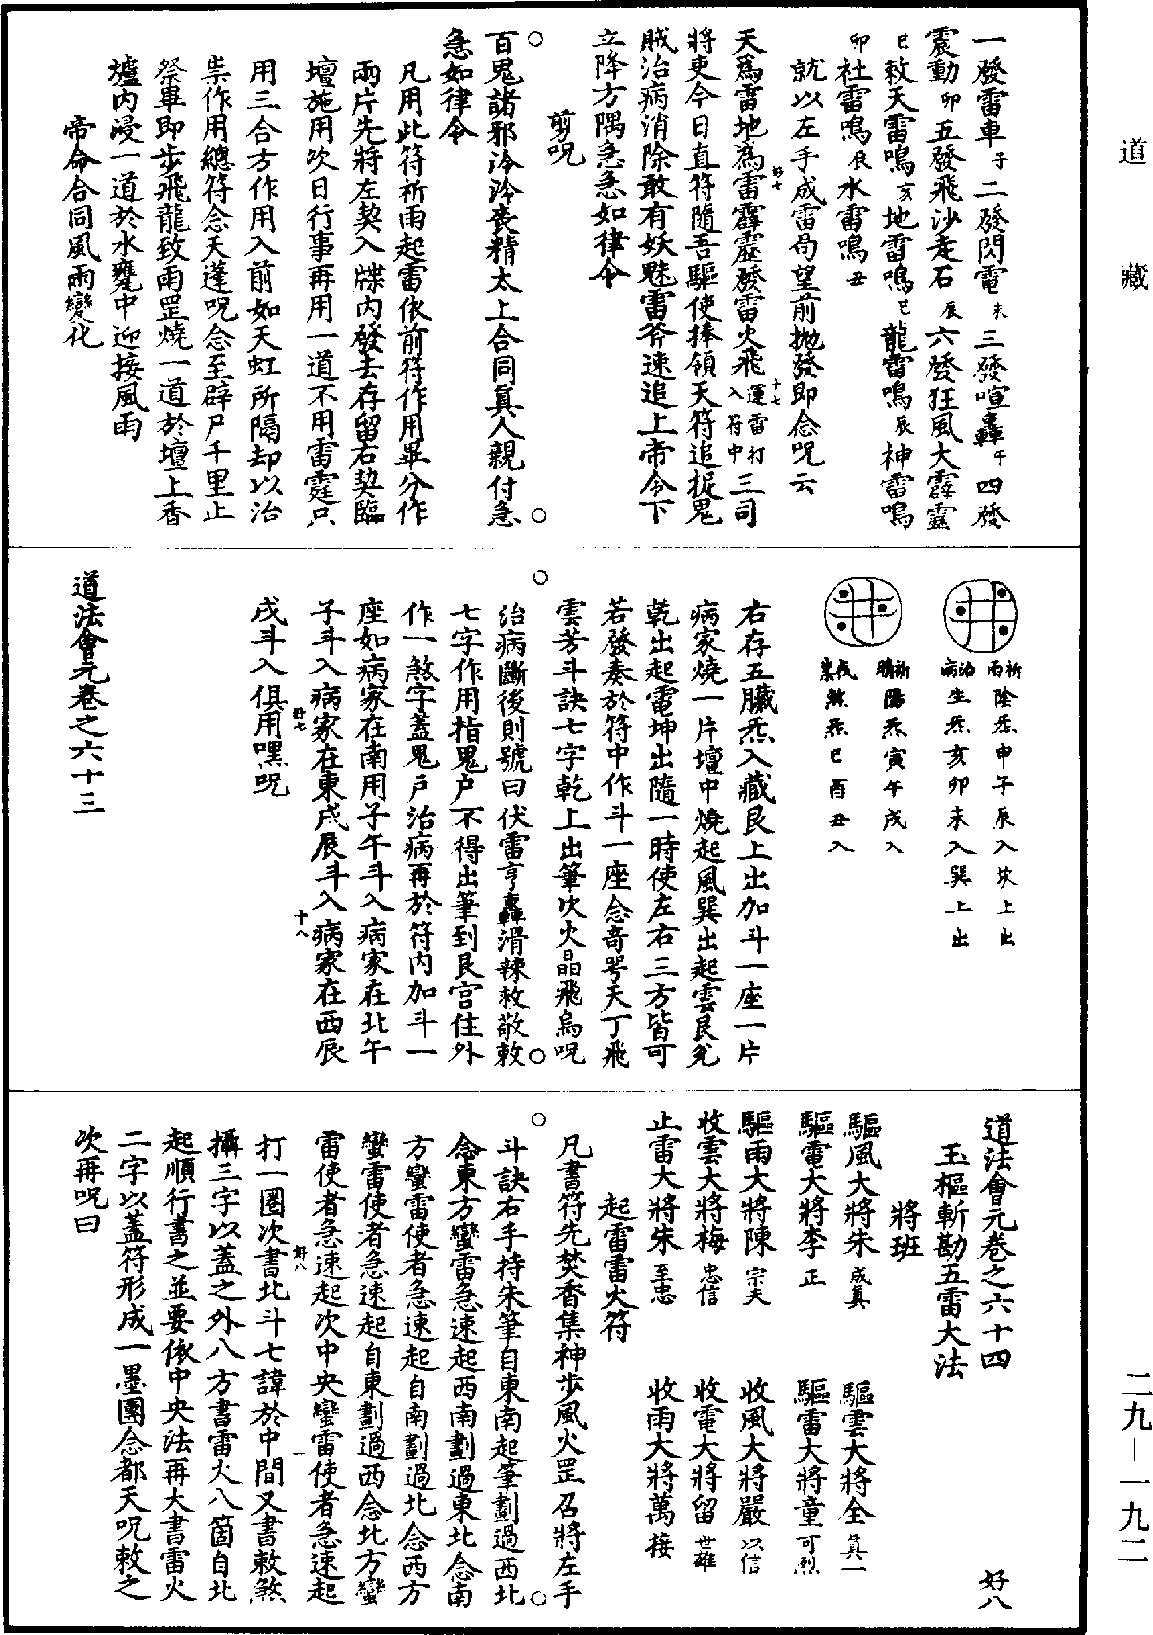 道藏
二九—一九二
一發雷車子二發閃電未三發喧轟午四發
震動卯五發飛沙走石辰六發狂風大霹靂
巳敕天雷鳴亥地雷鳴巳龍雷鳴辰神雷鳴
卯社雷鳴辰水雷鳴丑
就以左手成雷局望前拋發即念咒云
天為雷地為雷霹靂發雷火飛運雷打入符中三司
將吏今日直符隨吾驅使捧領天符追捉鬼
賊治病消除敢有妖魅雷斧速追上帝令下
立降方隅急急如律令
剪咒
百鬼諸邪冷冷喪精太上合同真人親付急
急如律令
凡用此符祈雨起雷依前符作用畢分作
兩片先將左契入牒內發去存留右契臨
壇施用次日行事再用一道不用雷霆只
用三合方作用入前如天虹所隔却以治
祟作用總符念天蓬咒念至辟尸千里止
祭畢即步飛龍致雨罡燒一道於壇上香
壚內浸一道於水甕中迎接風雨
帝命合同風雨變化
祈雨陰炁申午辰入坎上出
治病生炁亥卯未入巽上出
祈晴陽炁寅午戌入
伐祟煞炁巳酉丑入
右存五臟炁入藏艮上出加斗一座一片
病家燒一片壇中燒起風巽出起雲艮兌
乾出起電坤出隨一時使左右三方皆可
若發奏於符中作斗一座念奇咢天丁飛
雲芳斗訣七字乾上出筆吹火晶飛烏呪
治病斷後則號曰伏雷亨轟滑辣敕敬敕
七字作用指鬼户不得出筆到艮宫住外
作一煞字蓋鬼户治病再於符內加斗一
座如病家在南用子午斗入病家在北午
子斗入病家在東戌辰斗入病家在西辰
戌斗入俱用嘿咒
道法會元卷之六十三
道法會元卷之六十四
好八
玉樞斬勘五雷大法
將班
驅風大將朱成真　驅雲大將全真一
驅電大將李正　驅雷大將童可烈
驅雨大將陳宗夫　收風大將嚴以信
收雲大將梅忠信　收電大將留世雄
止雷大將朱至忠　收雨大將萬接
起雷雷火符
凡書符先焚香集神步風火罡召將左手
斗訣右手持朱筆自東南起筆劃過西北
念東方蠻雷急速起西南劃過東北念南
方蠻雷使者急速起自南劃過北念西方
蠻雷使者急速起自東劃過西念北方蠻
雷使者急速起次中央蠻雷使者急速起
打一圈次書北斗七諱於中間又書敕煞
攝三字以蓋之外八方書雷火八箇自北
起順行書之並要依中央法再大書雷火
二字以蓋符形成一墨團念都天咒敕之
次再咒曰